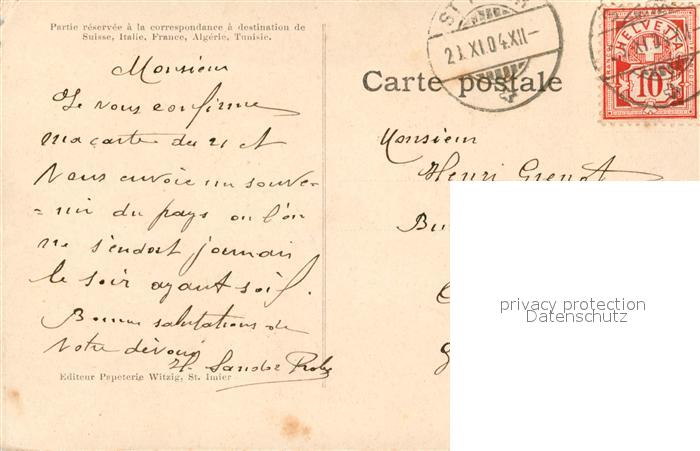 Partie réservée à la correspondance à destination de
Suisse, Italie, France, Algérie, Tunisie.
Monsieur
Je vous confirme
ma carte du 21 ct
Vous envoie un souve-
=nir du pays ou l'on
ne s'endort jamais
le soir ayant soif.
Bonnes salutations de
Votre dévoué
H. Sandoz
Editeur Papeterie Witzig, St. Imier
ST.
XI.04.XII-
HELVETIA
10
XI.04
Carte postale
Monsieur
Henri
privacy protection
Datenschutz